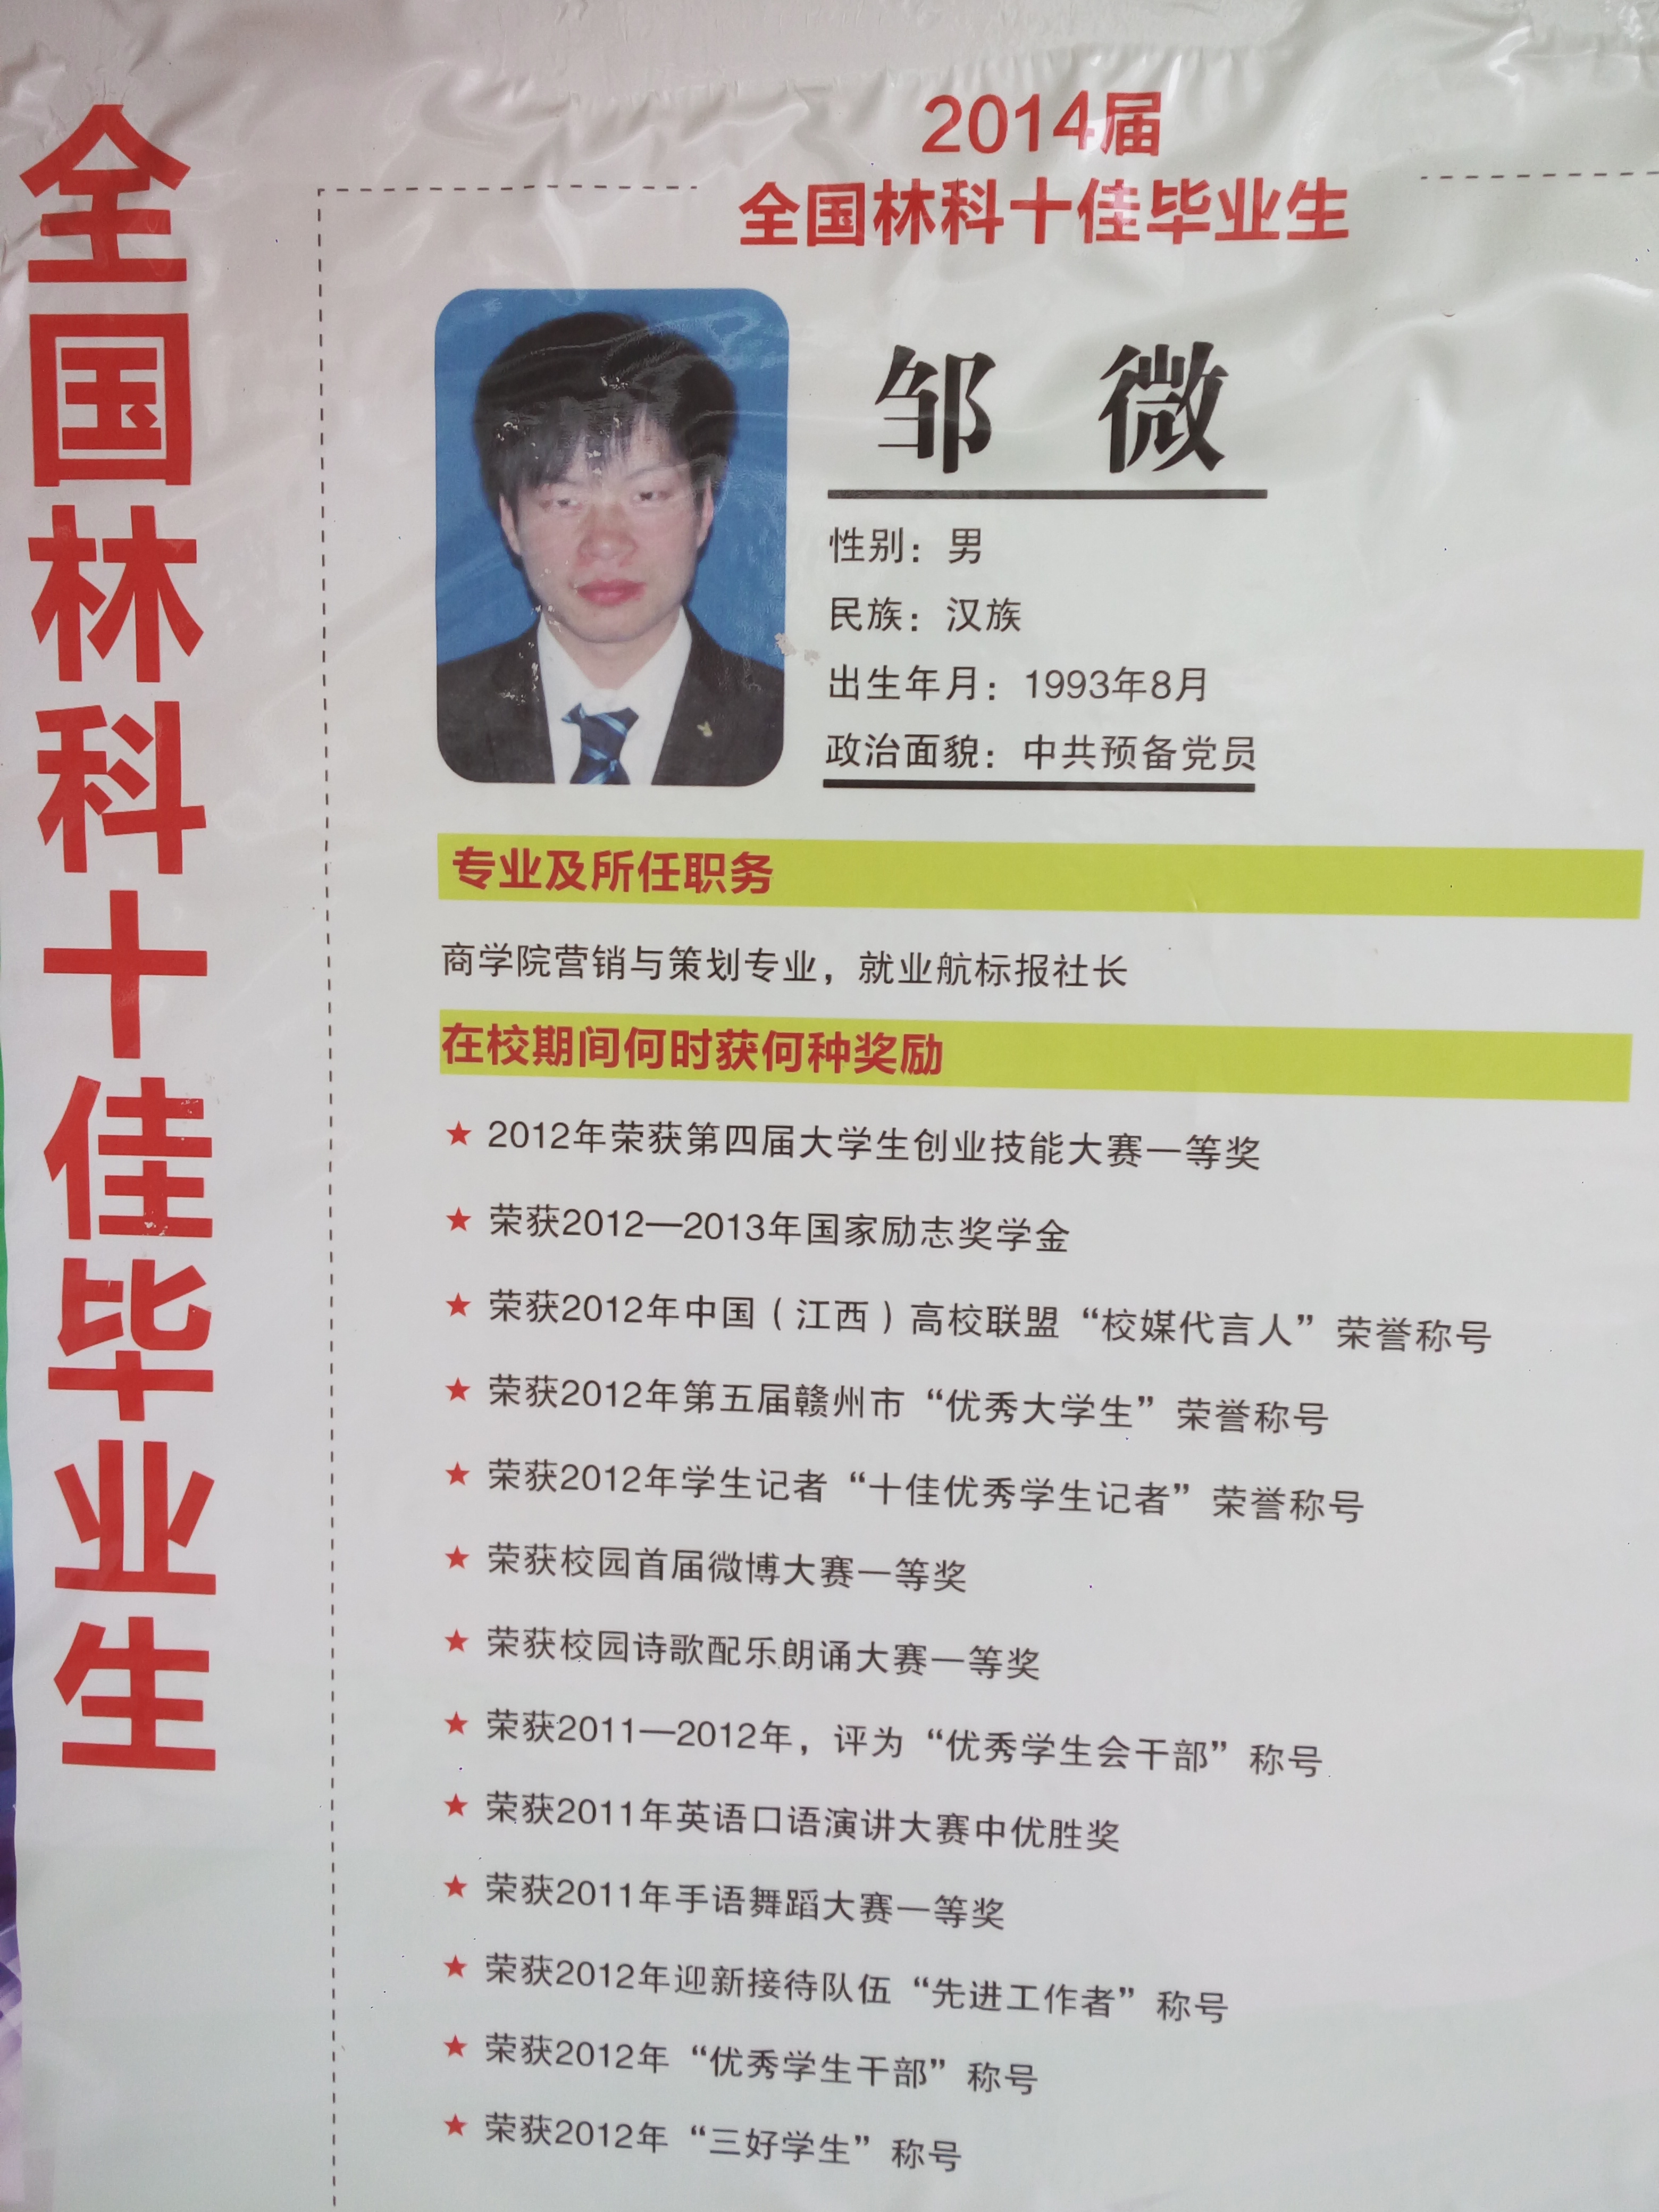 全国林科十佳毕业生
2014届
全国林科十佳毕业生
邹 微
性别：男
民族：汉族
出生年月：1993年8月
政治面貌：中共预备党员
专业及所任职务
商学院营销与策划专业，就业航标报社长
在校期间何时获何种奖励
★ 2012年荣获第四届大学生创业技能大赛一等奖
★ 荣获2012—2013年国家励志奖学金
★ 荣获2012年中国（江西）高校联盟“校媒代言人”荣誉称号
★ 荣获2012年第五届赣州市“优秀大学生”荣誉称号
★ 荣获2012年学生记者“十佳优秀学生记者”荣誉称号
★ 荣获校园首届微博大赛一等奖
★ 荣获校园诗歌配乐朗诵大赛一等奖
★ 荣获2011—2012年，评为“优秀学生会干部”称号
★ 荣获2011年英语口语演讲大赛中优胜奖
★ 荣获2011年手语舞蹈大赛一等奖
★ 荣获2012年迎新接待队伍“先进工作者”称号
★ 荣获2012年“优秀学生干部”称号
★ 荣获2012年“三好学生”称号